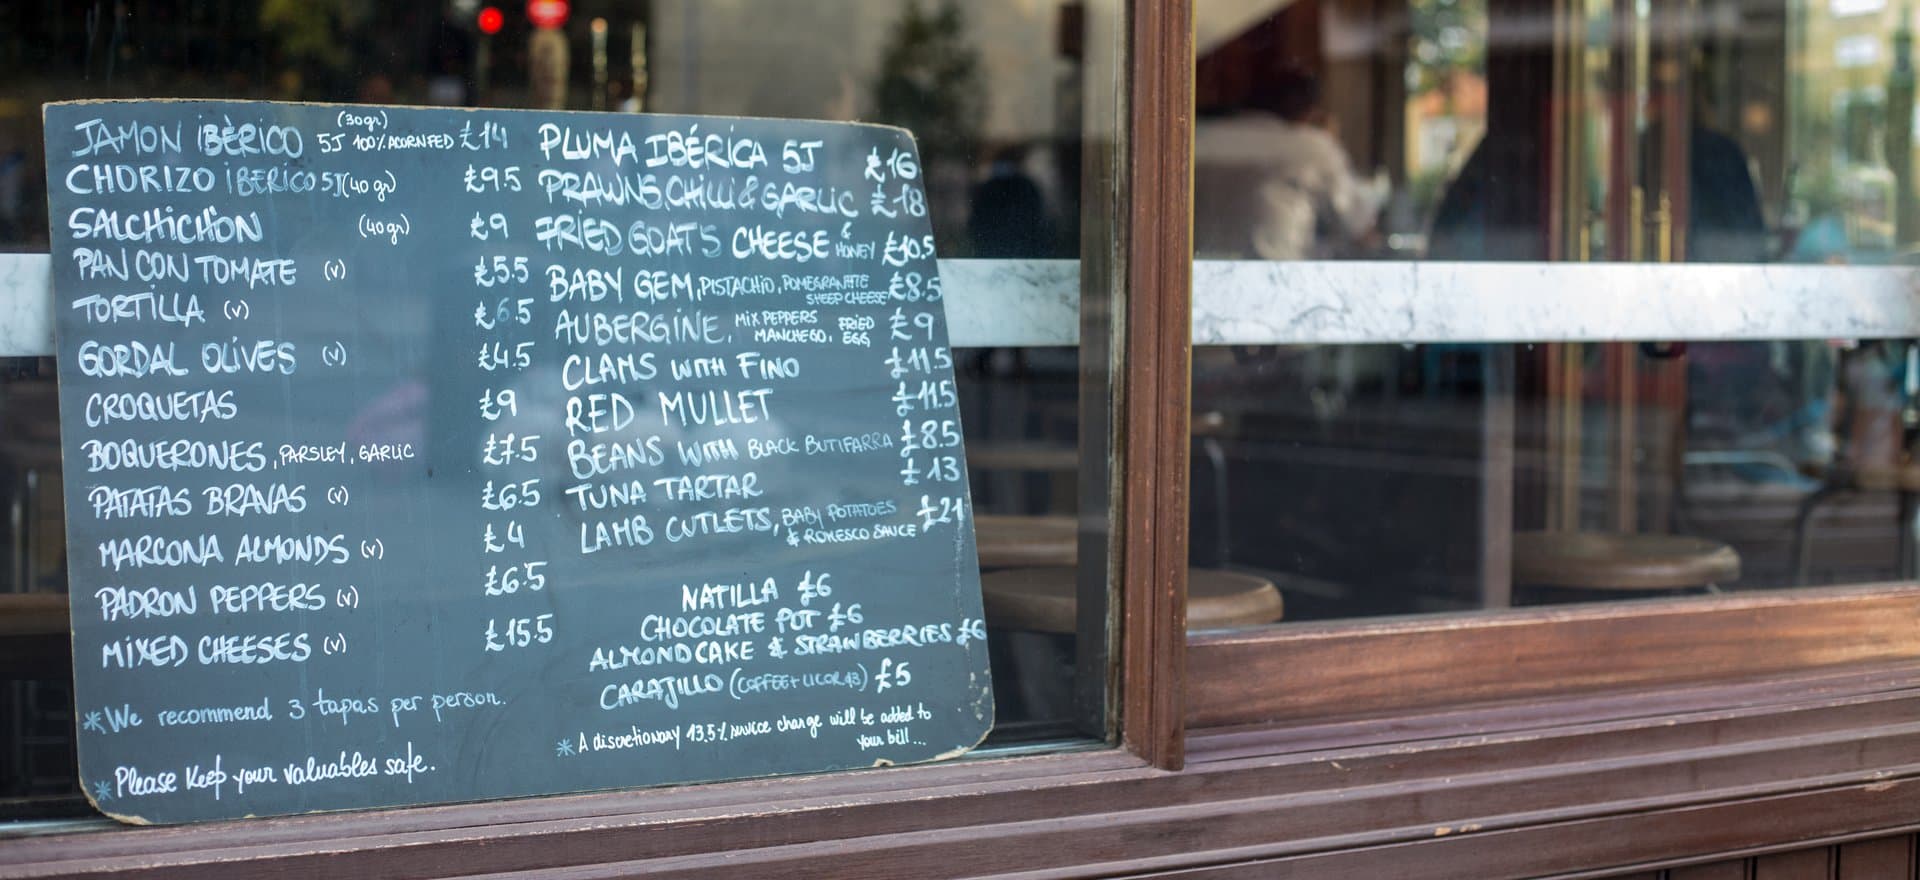 JAMON IBÈRICO (30gr) 5J 100% ACORN FED £14
CHORIZO IBERICO 5J (40 gr) £9.5
SALCHICHÓN (40 gr) £9
PAN CON TOMATE (v) £5.5
TORTILLA (v) £6.5
GORDAL OLIVES (v) £4.5
CROQUETAS £9
BOQUERONES, PARSLEY, GARLIC £7.5
PATATAS BRAVAS (v) £6.5
MARCONA ALMONDS (v) £4
PADRON PEPPERS (v) £6.5
MIXED CHEESES (v) £15.5
*We recommend 3 tapas per person.
*Please Keep your valuables safe.
PLUMA IBÉRICA 5J £16
PRAWNS, CHILLI & GARLIC £18
FRIED GOAT'S CHEESE & HONEY £10.5
BABY GEM, PISTACHIO, POMEGRANATE SHEEP CHEESE £8.5
AUBERGINE, MIX PEPPERS MANCHEGO, FRIED EGG £9
CLAMS WITH FINO £11.5
RED MULLET £11.5
BEANS WITH BLACK BUTIFARRA £8.5
TUNA TARTAR £13
LAMB CUTLETS, BABY POTATOES & ROMESCO SAUCE £21
NATILLA £6
CHOCOLATE POT £6
ALMOND CAKE & STRAWBERRIES £6
CARAJILLO (COFFEE + LICOR 43) £5
*A discretionary 13.5% service charge will be added to
your bill...